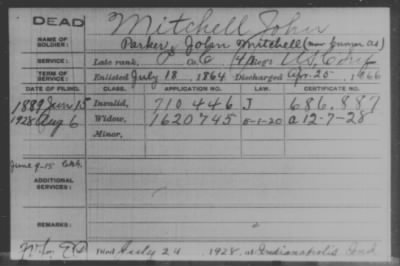 DEAD
Mitchell John
NAME OF SOLDIER:
Parker, John Mitchell (now known as)
SERVICE: Late rank, Co. C, 4 Reg't U.S.C. Inf
TERM OF SERVICE: Enlisted July 18, 1864 Discharged Apr. 25, 1866
DATE OF FILING. CLASS. APPLICATION NO. LAW. CERTIFICATE NO.
1889 Jun 15 Invalid, 710.446 J 686.887
1928 Aug 6 Widow, 1620745 5-1-20 a 12-7-28
Minor,
June 9-15
ADDITIONAL SERVICES:
REMARKS:
Died July 24, 1928, at Indianapolis Ind